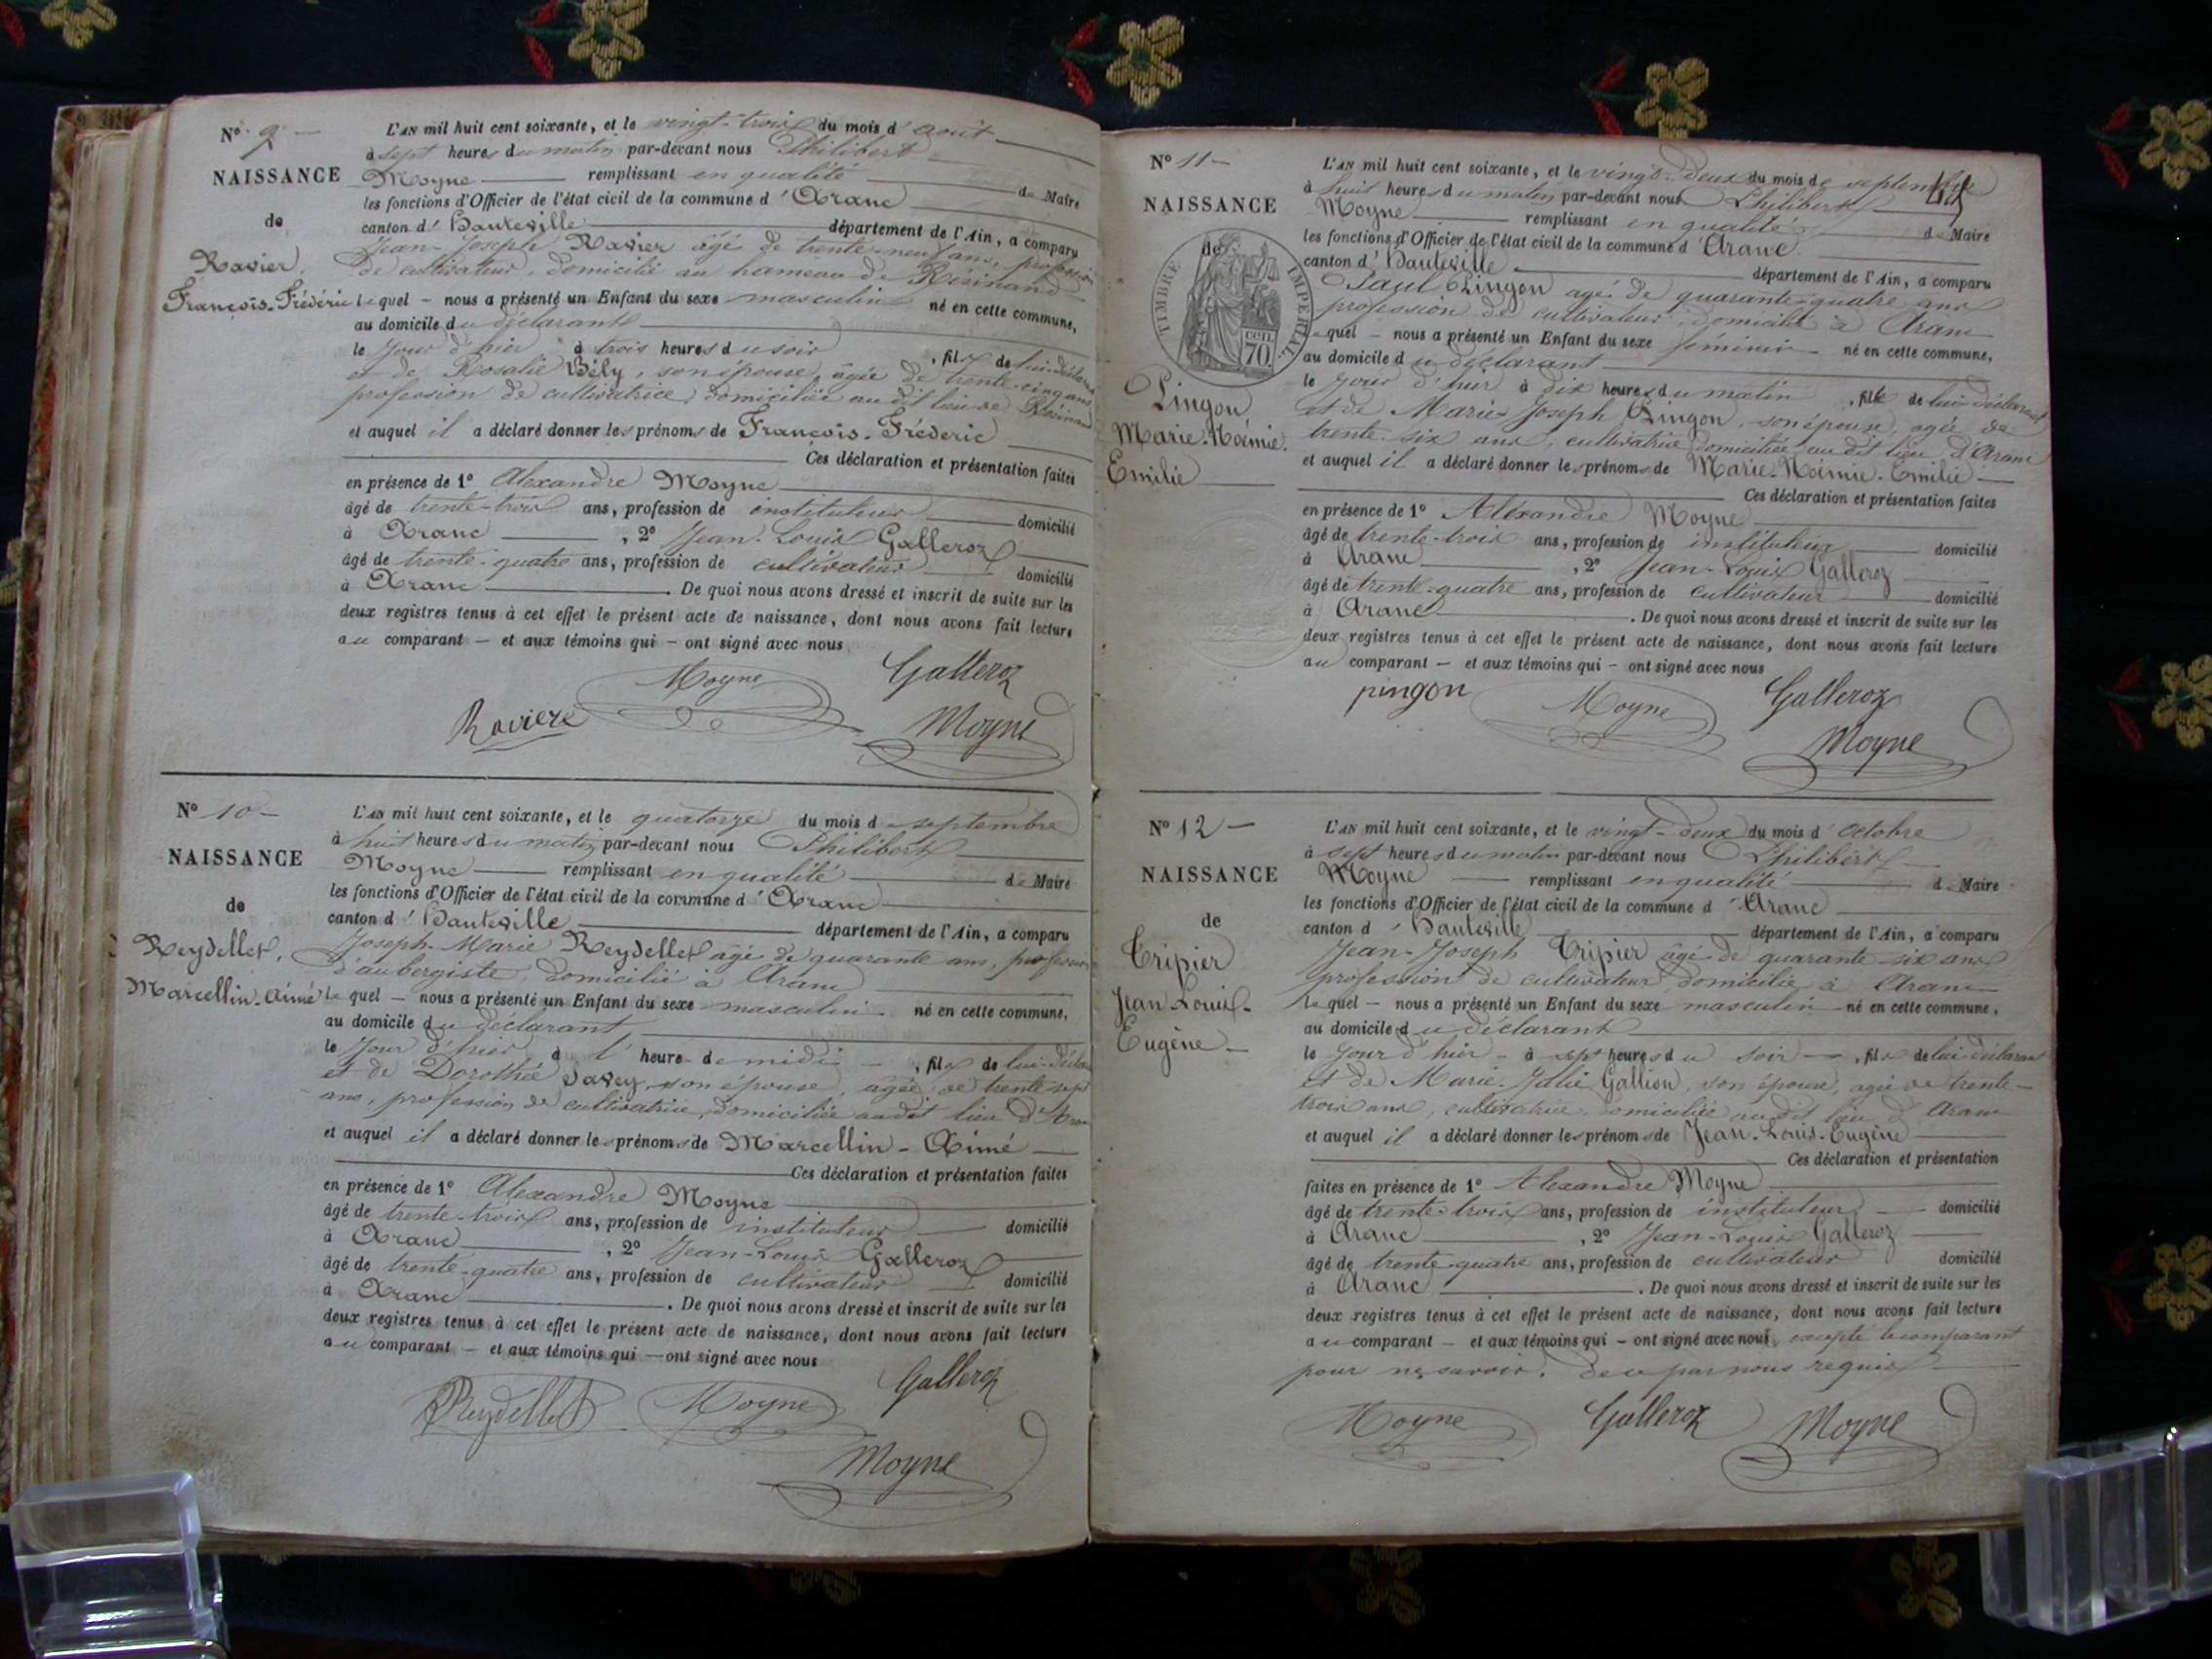 N° 9
L'AN mil huit cent soixante, et le vingt-trois du mois d'août
à sept heures du matin par-devant nous Philibert
NAISSANCE
Moyne remplissant en qualité de Maire
les fonctions d'Officier de l'état civil de la commune d'Aranc
de
canton d'Hauteville département de l'Ain, a comparu
Jean-Joseph Ravier âgé de trente-neuf ans, profession
Ravier,
de cultivateur, domicilié au hameau de Résinand
François-Frédéric
lequel – nous a présenté un Enfant du sexe masculin né en cette commune,
au domicile du déclarant
le jour d'hier à trois heures du soir, fils de lui déclarant
et de Rosalie Bély, son épouse, âgée de trente-cinq ans
profession de cultivatrice, domiciliée au dit lieu de Résinand
et auquel il a déclaré donner les prénoms de François-Fréderic
Ces déclaration et présentation faites
en présence de 1° Alexandre Moyne
âgé de trente-trois ans, profession de instituteur domicilié
à Aranc, 2° Jean-Louis Galleroz
âgé de trente-quatre ans, profession de cultivateur domicilié
à Aranc. De quoi nous avons dressé et inscrit de suite sur les
deux registres tenus à cet effet le présent acte de naissance, dont nous avons fait lecture
au comparant – et aux témoins qui – ont signé avec nous
Moyne Galleroz
Raviere Moyne
N° 10
L'AN mil huit cent soixante, et le quatorze du mois de septembre
à huit heures du matin par-devant nous Philibert
NAISSANCE
Moyne remplissant en qualité de Maire
les fonctions d'Officier de l'état civil de la commune d'Aranc
de
canton d'Hauteville département de l'Ain, a comparu
Reydellet,
Joseph-Marie Reydellet âgé de quarante ans, profession
d'aubergiste, domicilié à Aranc
Marcellin-Aimé
lequel – nous a présenté un Enfant du sexe masculin né en cette commune,
au domicile du déclarant
le jour d'hier à l'heure de midi, fils de lui déclarant
et de Dorothée Savey, son épouse, âgée de trente-sept
ans, profession de cultivatrice, domiciliée audit lieu d'Aranc
et auquel il a déclaré donner les prénoms de Marcellin-Aimé
Ces déclaration et présentation faites
en présence de 1° Alexandre Moyne
âgé de trente-trois ans, profession de instituteur domicilié
à Aranc, 2° Jean-Louis Galleroz
âgé de trente-quatre ans, profession de cultivateur domicilié
à Aranc. De quoi nous avons dressé et inscrit de suite sur les
deux registres tenus à cet effet le présent acte de naissance, dont nous avons fait lecture
au comparant – et aux témoins qui – ont signé avec nous
Reydellet Moyne Galleroz
Moyne
N° 11
L'AN mil huit cent soixante, et le vingt-deux du mois de septembre
à huit heures du matin par-devant nous Philibert
NAISSANCE
Moyne remplissant en qualité de Maire
les fonctions d'Officier de l'état civil de la commune d'Aranc
de
canton d'Hauteville département de l'Ain, a comparu
TIMBRE IMPERIAL
CEN. 70
Paul Pingon agé de quarante-quatre ans
profession de cultivateur, domicilié à Aranc
lequel – nous a présenté un Enfant du sexe féminin né en cette commune,
au domicile du déclarant
Pingon
le jour d'hier à dix heures du matin, fille de lui déclarant
et de Marie-Joseph Pingon, son épouse, agée de
Marie-Noémie.
trente-six ans, cultivatrice domiciliée au dit lieu d'Aranc
Emilie
et auquel il a déclaré donner les prénoms de Marie-Noémie-Emilie
Ces déclaration et présentation faites
en présence de 1° Aléxandre Moyne
âgé de trente-trois ans, profession de instituteur domicilié
à Aranc, 2° Jean-Louis Galleroz
âgé de trente-quatre ans, profession de cultivateur domicilié
à Aranc. De quoi nous avons dressé et inscrit de suite sur les
deux registres tenus à cet effet le présent acte de naissance, dont nous avons fait lecture
au comparant – et aux témoins qui – ont signé avec nous
pingon Moyne Galleroz
Moyne
N° 12
L'AN mil huit cent soixante, et le vingt-deux du mois d'octobre
à sept heures du matin par-devant nous Philibert
NAISSANCE
Moyne remplissant en qualité de Maire
les fonctions d'Officier de l'état civil de la commune d'Aranc
de
canton d'Hauteville département de l'Ain, a comparu
Tripier
Jean-Joseph Tripier âgé de quarante-six ans
profession de cultivateur, domicilié à Aranc
Jean-Louis-
lequel – nous a présenté un Enfant du sexe masculin né en cette commune,
au domicile du déclarant
Eugène
le jour d'hier à sept heures du soir, fils de lui déclarant
et de Marie-Julie Gallion, son épouse, agée de trente-
trois ans, cultivatrice, domiciliée au dit lieu d'Aranc
et auquel il a déclaré donner les prénoms de Jean-Louis-Eugène
Ces déclaration et présentation
faites en présence de 1° Alexandre Moyne
âgé de trente-trois ans, profession de instituteur domicilié
à Aranc, 2° Jean-Louis Galleroz
âgé de trente-quatre ans, profession de cultivateur domicilié
à Aranc. De quoi nous avons dressé et inscrit de suite sur les
deux registres tenus à cet effet le présent acte de naissance, dont nous avons fait lecture
au comparant – et aux témoins qui – ont signé avec nous, excepté le comparant
pour ne savoir, de ce par nous requis
Moyne Galleroz Moyne